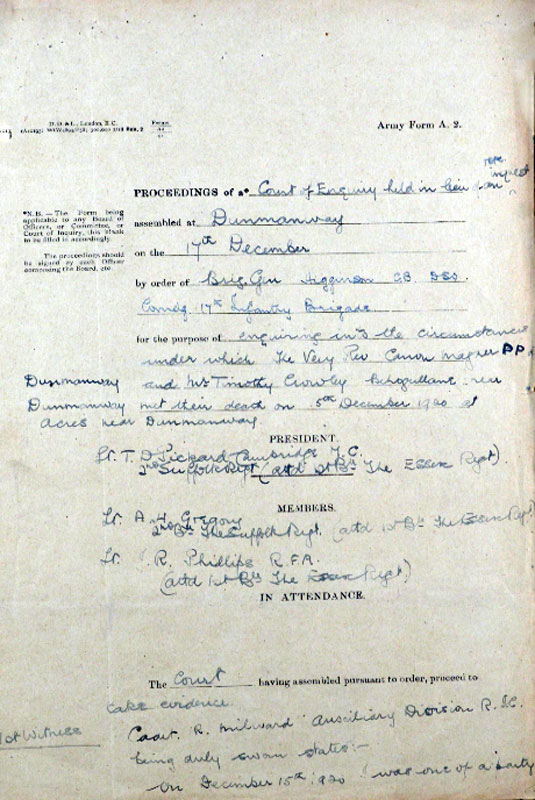 D.D.& L., London, E.C.
Forms
A2
Army Form A. 2.
PROCEEDINGS of a* Court of Enquiry held in lieu of an inquest
*N.B.—The Form being
applicable to any Board of
Officers, or Committee, or
Court of Inquiry, this blank
to be filled in accordingly.
The proceedings should
be signed by each Officer
composing the Board, etc.
assembled at Dunmanway
on the 17th December
by order of Brig. Gen Higginson CB DSO
Comdg 17th Infantry Brigade
for the purpose of enquiring into the circumstances
under which The Very Rev Canon Magner PP
Dunmanway and Mr Timothy Crowley near
Dunmanway met their death on 15th December 1920 at
Acres near Dunmanway
PRESIDENT.
Lt. T. D Pickard Cambridge I.C.
2nd Suffolk Regt (attd 1st Bn The Essex Regt)
MEMBERS.
Lt A H Gregory
2nd Bn The Suffolk Regt. (attd 1st Bn The Essex Regt)
Lt. R. Phillips R.F.A.
(attd 1st Bn The Essex Regt)
IN ATTENDANCE.
The Court having assembled pursuant to order, proceed to
take evidence.
1st Witness
Cadet. R. Milward Auxiliary Division R.I.C.
being duly sworn states:-
On December 15th 1920 I was one of a party